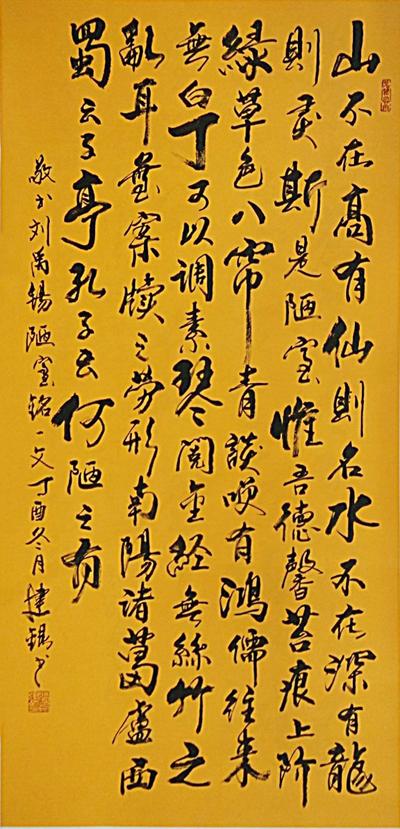 山不在髙有仙則名水不在深有龍
則灵斯是陋室惟吾德馨苔痕上阶
緑草色入帘青談笑有鴻儒往来
無白丁可以调素琴閲金經無絲竹之
亂耳無案牘之劳形南陽诸葛廬西
蜀云子亭孔子云何陋之有
敬书刘禹锡陋室铭一文丁酉冬月建书